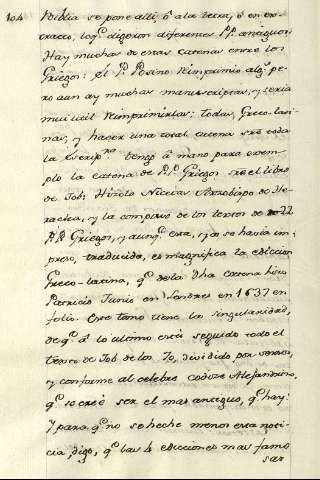 104 Biblia se pone alli, ô a la letra, ô en ex-
tracto, lo q.e digeron diferentes P.P. antiguos.
Hay muchas de estas catenas entre los
Griegos: el P. Posino Rimprimio alg.s pe-
ro aun ay muchas manuscriptas, y seria
mui util Rimprimirlas: todas, Greco-lati-
nas, y hacer una total catena sre toda
la Escrip.ra tengo â mano para exem-
plo la catena de PP. Griegos sre el libro
de Job: Hizola Nicetas Arzobispo de He-
raclea, y la compuso de los textos de 22
P.P. Griegos, y aunq.e esta, ya se havia im-
preso, traducida, es magnifica la edicion
Greco-latina, q.e de la dha catena hizo
Patricio Junio en Londres en 1637 en
folio. Este tomo tiene la singularidad,
de q.e â lo ultimo està seguido todo el
texto de Job de los 70, dividido por versos,
y conforme al celebre codice Alejandrino,
q.e se creè ser el mas antiguo, q.e hay:
Y para q.e no se heche menos esta noti-
cia, digo, q.e las 4 ediciones mas famo
sas